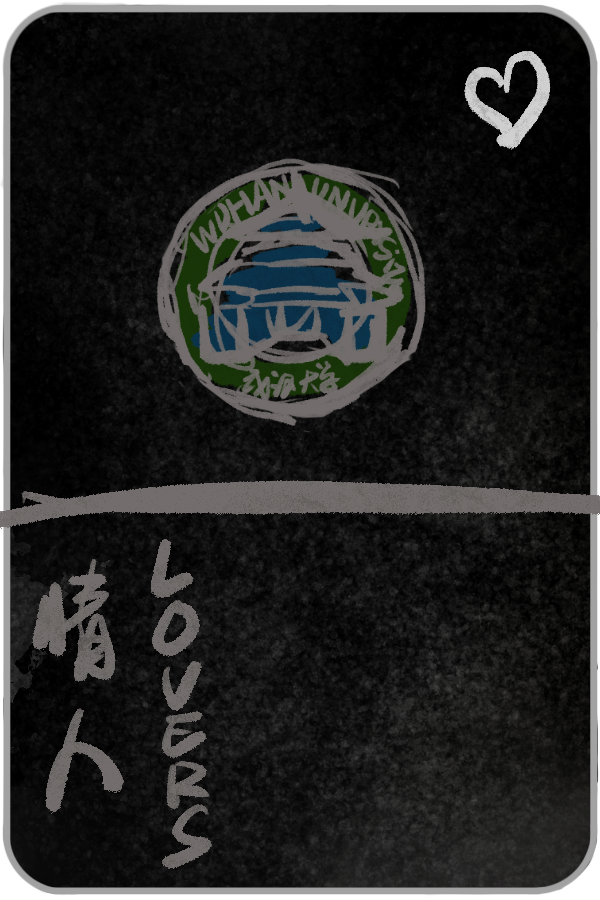 WUHAN UNIVERSITY
武汉大学
晴人
LOVERS